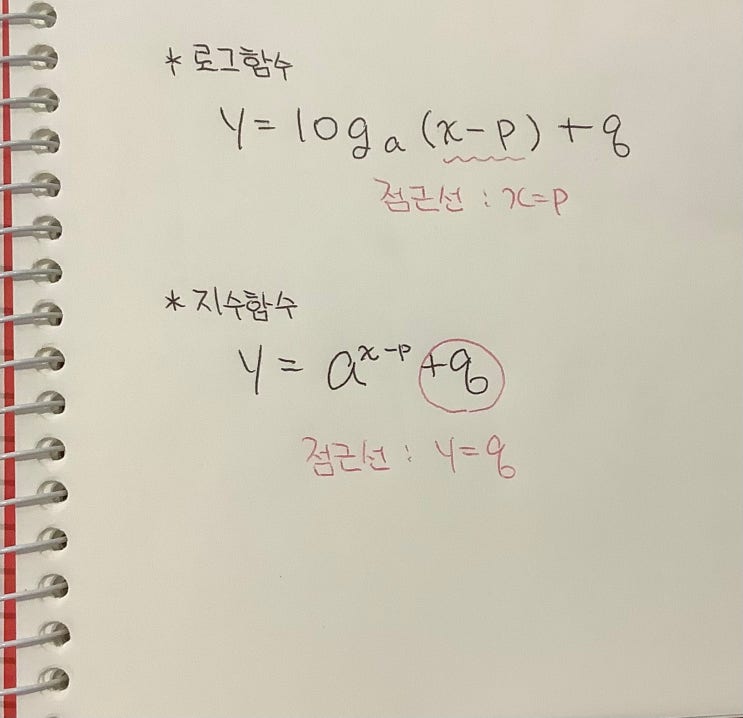 * 로그함수
y = log_a (x-p) + q
점근선 : x=p
* 지수함수
y = a^{x-p} + q
점근선 : y=q